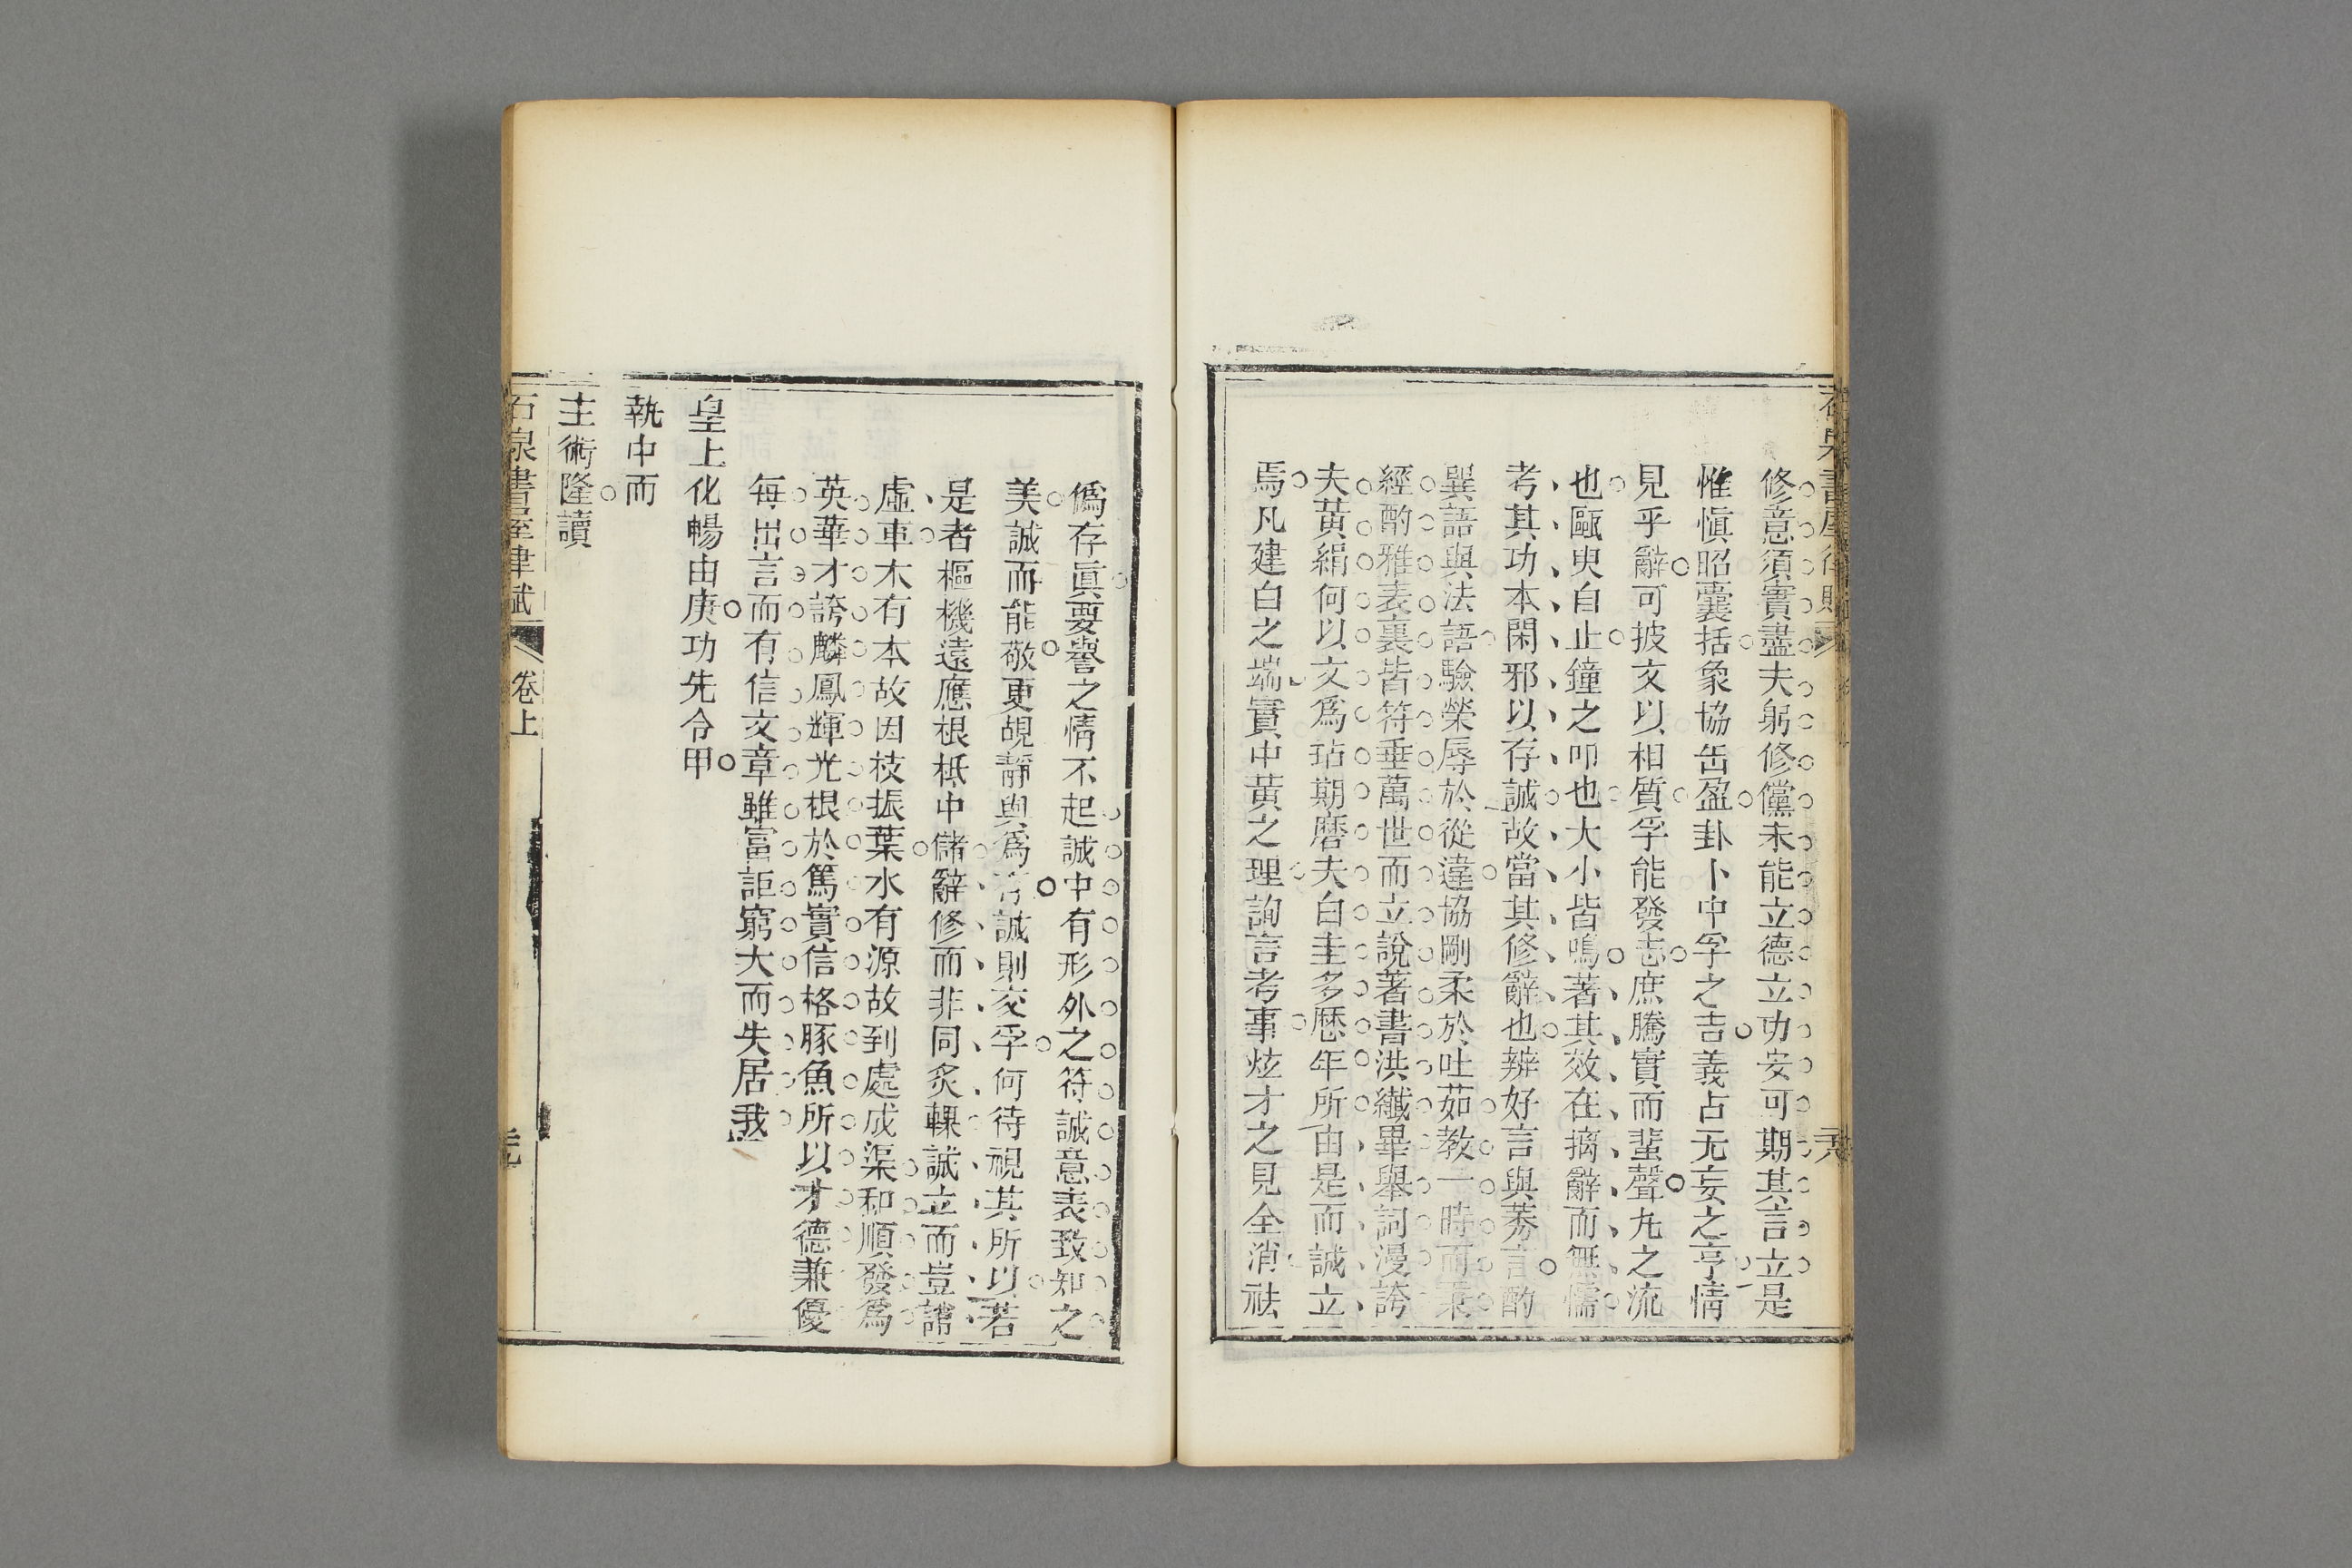 修意須實盡夫躬修儻未能立德立功安可期其言立是
惟愼昭囊括象協缶盈卦卜中孚之吉義占无妄之亨情
見乎辭可披文以相質孚能發志庶騰實而蜚聲九之流
也甌臾自止鐘之叩也大小皆鳴著其效在摛辭而無懦
考其功本閑邪以存誠故當其修辭也辨好言與莠言酌
巽語與法語驗榮辱於從違協剛柔於吐茹教一時而
經酌雅表裏皆符垂萬世而立說著書洪纖畢舉詞漫誇
夫黃絹何以文爲玷期磨夫白圭多歷年所由是而誠立
焉凡建白之端實中黃之理詢言考事炫才之見全消祛
僞存眞要譽之情不起誠中有形外之符誠意表致知之
美誠而能敬更覘靜與爲誠則交孚何待視其所以若
是者樞機遠應根柢中儲辭修而非同炙輠誠立而豈諸
虛車木有本故因枝振葉水有源故到處成渠和順發爲
英華才誇麟鳳輝光根於篤實信格豚魚所以才德兼優
每出言而有信文章雖富詎窮大而失居我
皇上化暢由庚功先令甲
執中而
主術隆讀
石泉書屋律賦
卷上